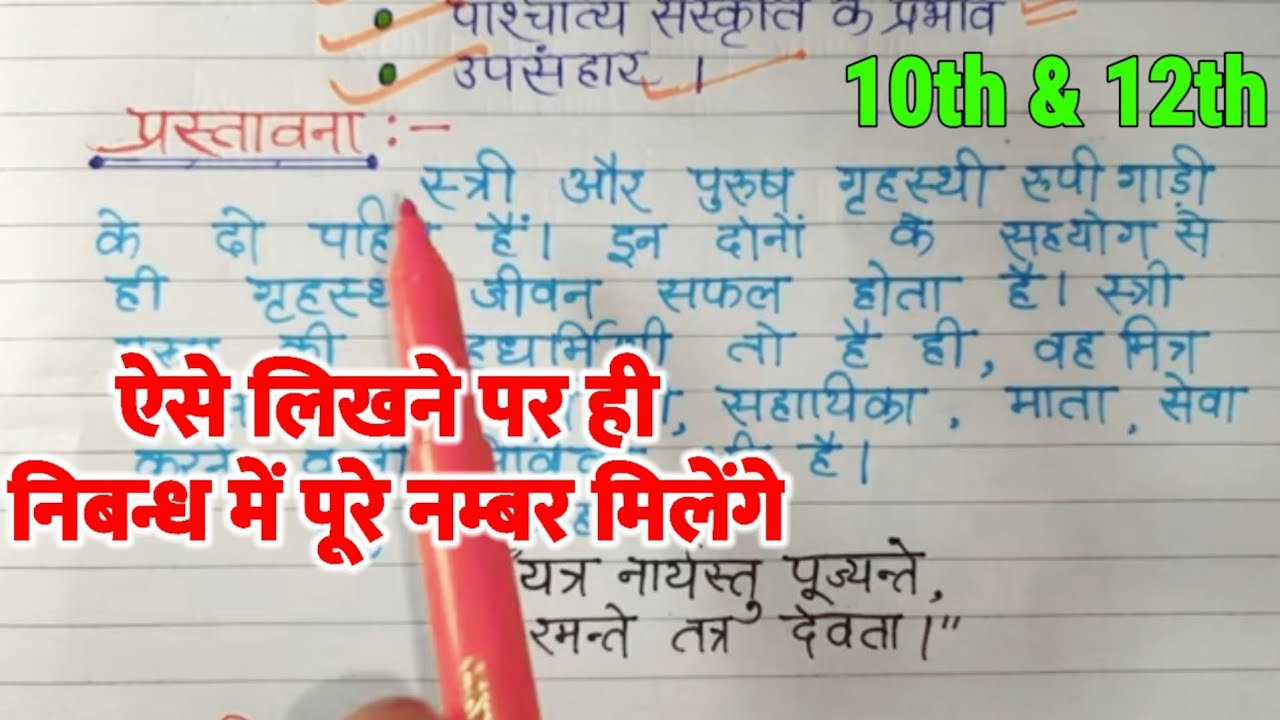 पाश्चात्य संस्कृति के प्रभाव
उपसंहार ।
10th & 12th
प्रस्तावना :-
स्त्री और पुरुष गृहस्थी रुपी गाड़ी
के दो हैं। इन दोनों के सहयोग से
ही गृहस्थ जीवन सफल होता है। स्त्री
की तो है ही, वह मित्र
सहायिका, माता, सेवा
है।
ऐसे लिखने पर ही
निबन्ध में पूरे नम्बर मिलेंगे
"यत्र नार्यस्तु पूज्यन्ते,
रमन्ते तत्र देवता।"